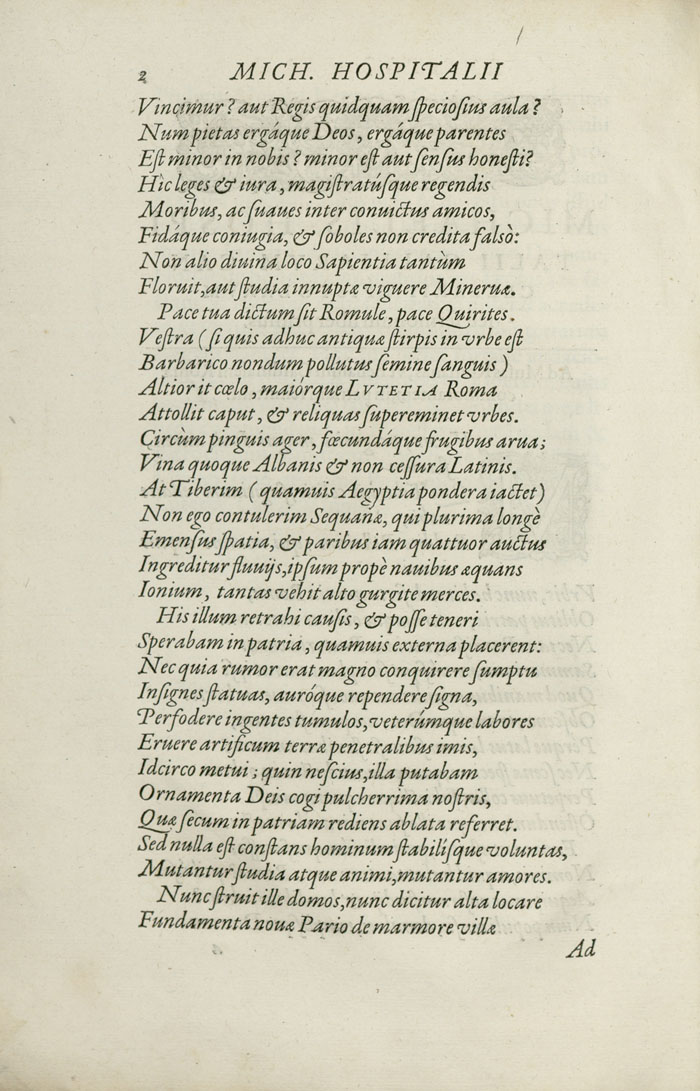 2 MICH. HOSPITALII
Vincimur? aut Regis quidquam ſpecioſius aula?
Num pietas ergáque Deos, ergáque parentes
Eſt minor in nobis? minor eſt aut ſenſus honeſti?
Hîc leges & iura, magiſtratúſque regendis
Moribus, ac ſuaues inter conuictus amicos,
Fidáque coniugia, & ſoboles non credita falsò:
Non alio diuina loco Sapientia tantùm
Floruit, aut ſtudia innuptæ viguere Mineruæ.
Pace tua dictum ſit Romule, pace Quirites.
Veſtra (ſi quis adhuc antiquæ ſtirpis in vrbe eſt
Barbarico nondum pollutus ſemine ſanguis)
Altior it cœlo, maiórque LVTETIA Roma
Attollit caput, & reliquas ſupereminet vrbes.
Circùm pinguis ager, fœcundáque frugibus arua;
Vina quoque Albanis & non ceſſura Latinis.
At Tiberim (quamuis Aegyptia pondera iactet)
Non ego contulerim Sequanæ, qui plurima longè
Emenſus ſpatia, & paribus iam quattuor auctus
Ingreditur fluuijs, ipſum propè nauibus æquans
Ionium, tantas vehit alto gurgite merces.
His illum retrahi cauſis, & poſſe teneri
Sperabam in patria, quamuis externa placerent:
Nec quia rumor erat magno conquirere ſumptu
Inſignes ſtatuas, auróque rependere ſigna,
Perfodere ingentes tumulos, veterúmque labores
Eruere artificum terræ penetralibus imis,
Idcirco metui; quin neſcius, illa putabam
Ornamenta Deis cogi pulcherrima noſtris,
Quæ ſecum in patriam rediens ablata referret.
Sed nulla eſt conſtans hominum ſtabiliſque voluntas,
Mutantur ſtudia atque animi, mutantur amores.
Nunc ſtruit ille domos, nunc dicitur alta locare
Fundamenta nouæ Pario de marmore villæ
Ad